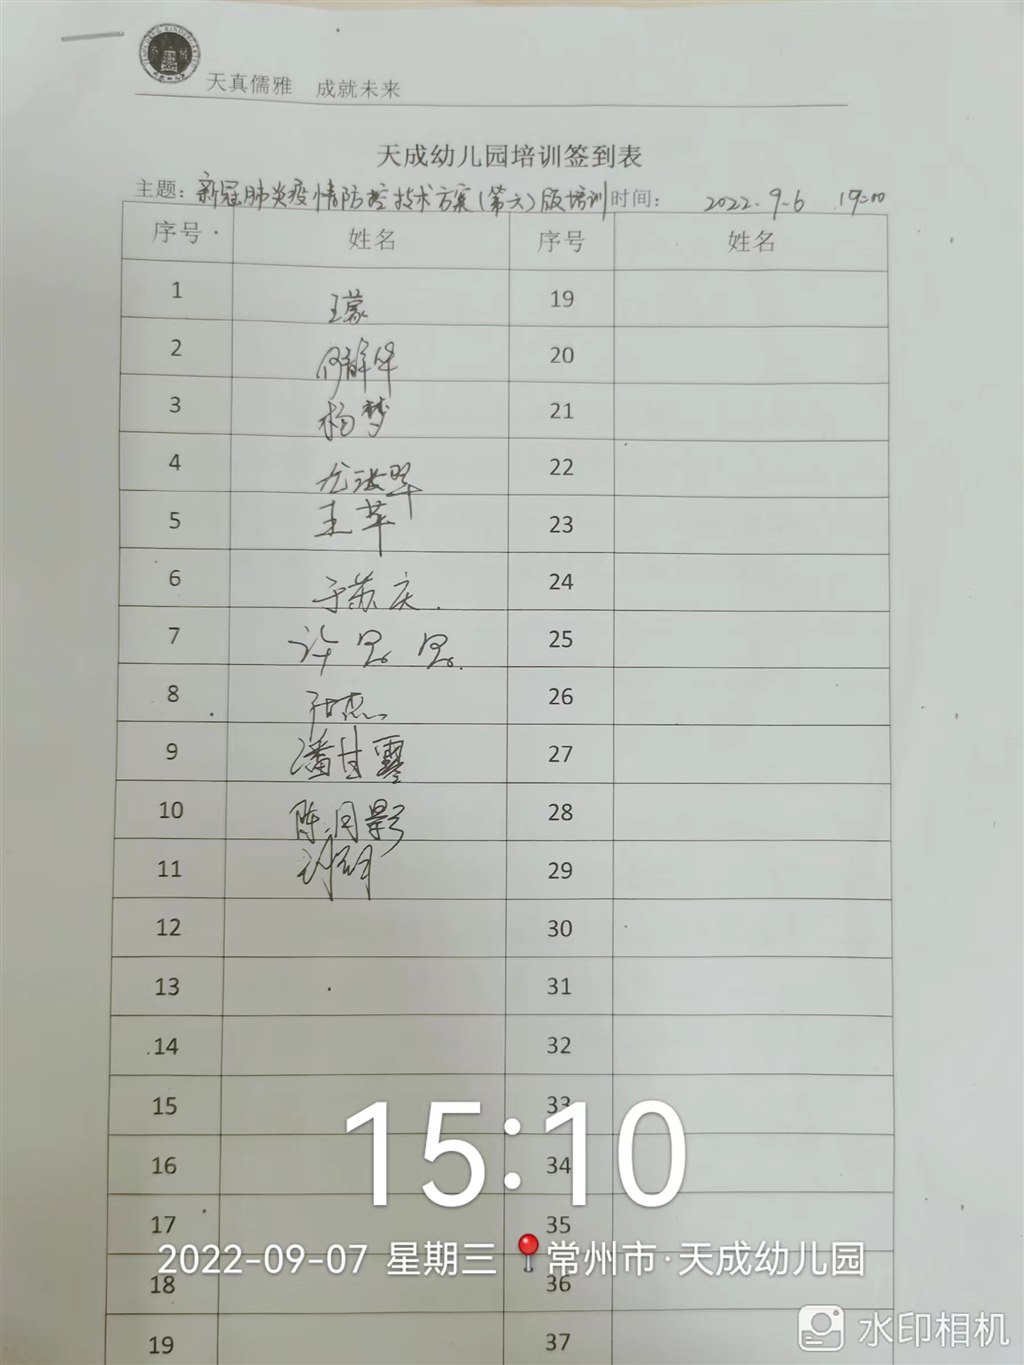 天真儒雅 成就未来
天成幼儿园培训签到表
主题：新冠肺炎疫情防控技术方案(第六)版培训 时间： 2022.9.6 19:00
序号 姓名 序号 姓名
1 王蒙 19
2 20
3 杨梦 21
4 22
5 王苹 23
6 于苏庆. 24
7 许思思. 25
8 26
9 潘甘露 27
10 陈月影 28
11 29
12 30
13 31
14 32
15 33
16 34
17 35
18 36
19 37
15:10
2022-09-07 星期三 常州市·天成幼儿园
水印相机